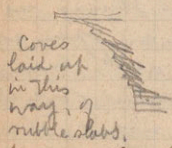 Coves
laid up
in this
way, of
rubble slabs.